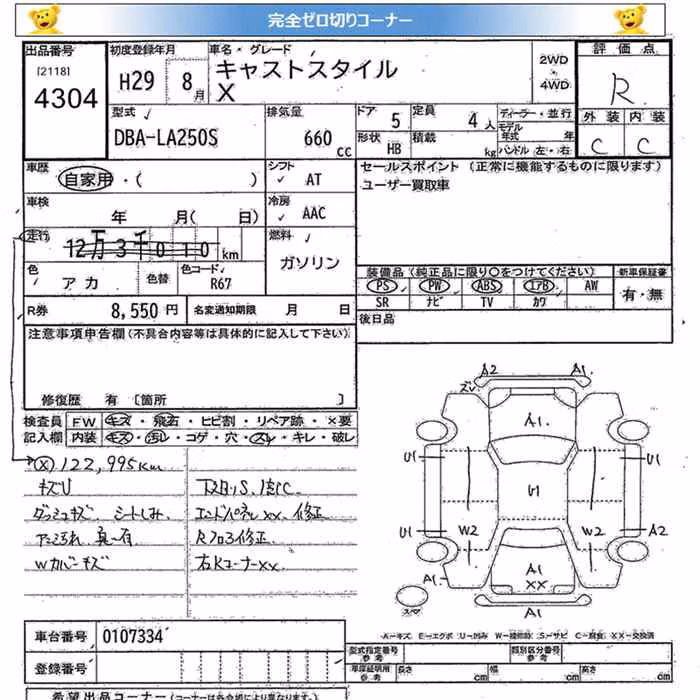 完全ゼロ切りコーナー
出品番号
[2118]
4304
初度登録年月
H29 8月
車名・グレード
キャストスタイル
X
2WD
4WD
評価点
R
外装 内装
C C
型式
DBA-LA250S
排気量
660 cc
ドア 5
定員 4人
形状 HB
積載 kg
ディーラー・並行
モデル年式 年
ハンドル 左・右
車歴
自家用・( )
シフト
AT
セールスポイント (正常に機能するものに限ります)
ユーザー買取車
車検
年 月( 日)
冷房
AAC
走行
12万3千010 km
燃料
ガソリン
色
アカ
色替
色コード
R67
装備品 (純正品に限り○をつけてください)
新車保証書
PS PW ABS エアB AW
SR ナビ TV カワ
有・無
R券 8,550円
名変通知期限 月 日
後日品
注意事項申告欄(不具合内容等は具体的に記入して下さい)
修復歴 有 [箇所 ]
検査員
記入欄
FW キズ・飛石・ヒビ割・リペア跡・×要
内装 キズ・汚レ・コゲ・穴・スレ・キレ・破レ
122,995km
キズU
ダッシュキズ、シートしみ、
Wカバーキズ
エンドパネルxx、修正
Rフロア修正
右Rコーナーxx
A2 A1
A1
U1
U1
U1
U1
W2
W2
A2
A1
A1
XX
A1
A-キズ E-エクボ U-凹み W-補修跡 S-サビ C-腐食 XX-交換済
車台番号 0107334
登録番号
型式指定番号
参考
類別区分番号
参考
車庫証明用
参考
長さ cm
幅 cm
高さ cm
希望出品コーナー (コーナーは各会場により異なります)